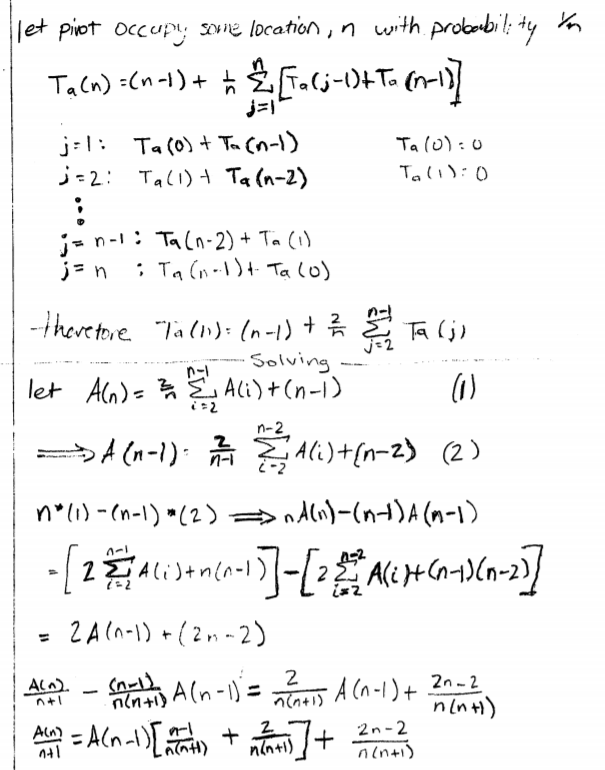 let pivot occupy some location, n with probability 1/n
Ta(n) = (n-1) + 1/n Σ_{j=1}^{n} [Ta(j-1)+Ta(n-1)]
j=1: Ta(0) + Ta(n-1) Ta(0)=0
j=2: Ta(1) + Ta(n-2) Ta(1)=0
⋮
j=n-1: Ta(n-2) + Ta(1)
j=n : Ta(n-1) + Ta(0)
therefore Ta(n) = (n-1) + 2/n Σ_{j=2}^{n-1} Ta(j)
Solving
let A(n) = 2/n Σ_{i=2}^{n-1} A(i) + (n-1) (1)
⟹ A(n-1) = 2/(n-1) Σ_{i=2}^{n-2} A(i) + (n-2) (2)
n*(1) - (n-1)*(2) ⟹ nA(n)-(n-1)A(n-1)
= [2 Σ_{i=2}^{n-1} A(i)+n(n-1)] - [2 Σ_{i=2}^{n-2} A(i)+(n-1)(n-2)]
= 2A(n-1) + (2n-2)
A(n)/(n+1) - (n-1)/(n(n+1)) A(n-1) = 2/(n(n+1)) A(n-1) + (2n-2)/(n(n+1))
A(n)/(n+1) = A(n-1)[(n-1)/(n(n+1)) + 2/(n(n+1))] + (2n-2)/(n(n+1))